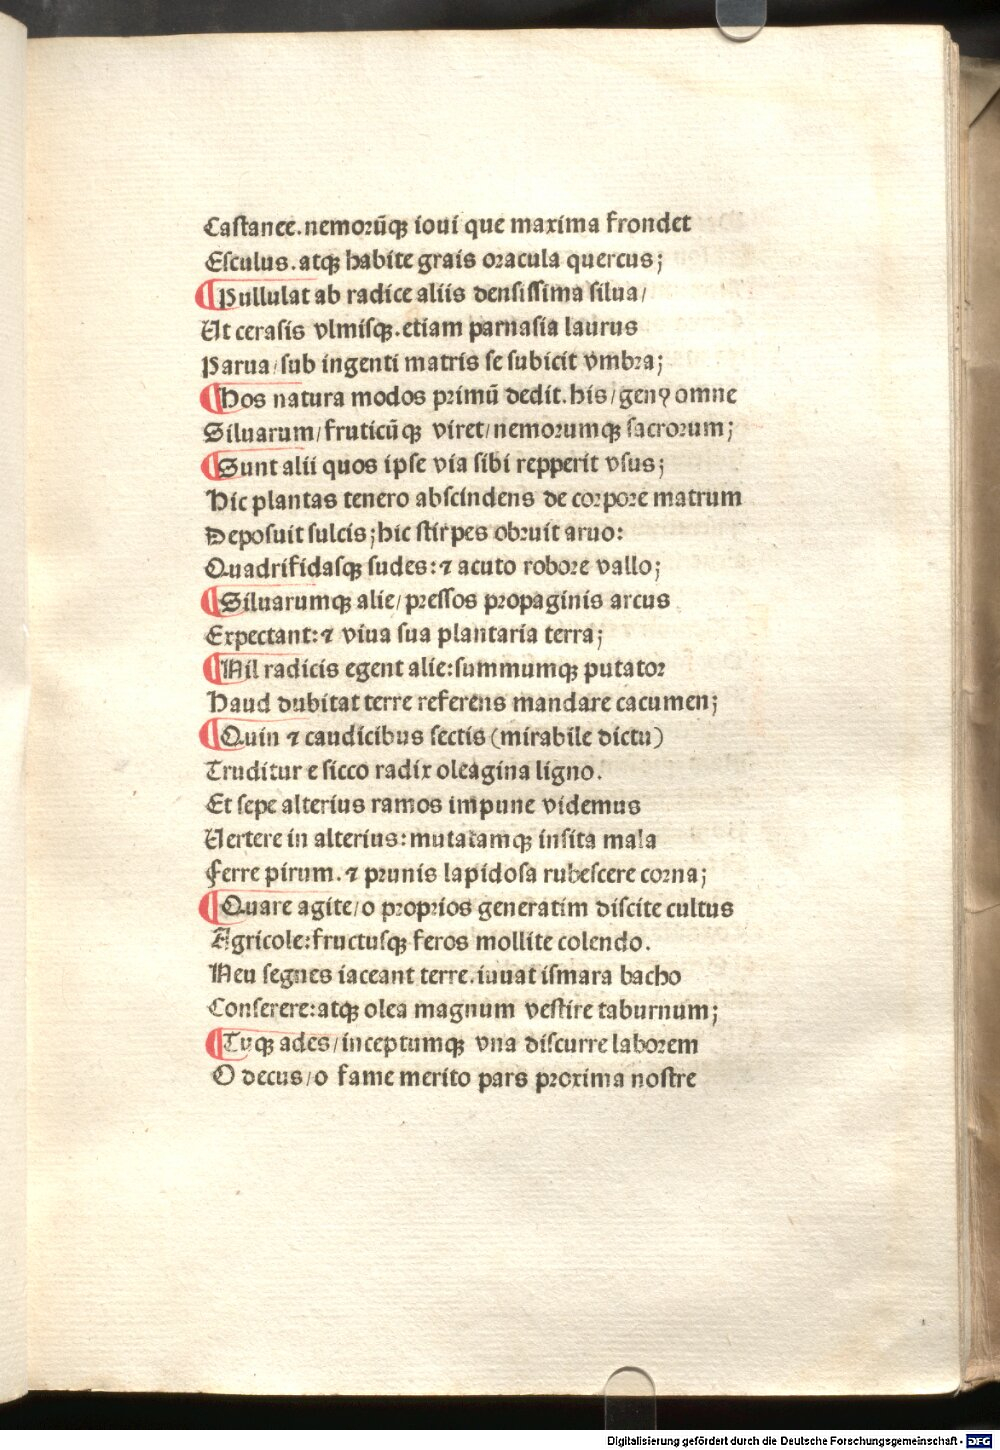 Caſtanee.nemoꝛūqꝫ ioui que maxima frondet
Eſculus.atqꝫ habite grais oꝛacula quercus;
¶Pullulat ab radice aliis denſiſſima ſilua/
Ut ceraſis vlmiſqꝫ.etiam parnaſia laurus
Parua/ſub ingenti matris ſe ſubicit vmbꝛa;
¶Hos natura modos pꝛimū dedit.his/genꝰ omne
Siluarum/fruticūqꝫ viret/nemoꝛumqꝫ ſacroꝛum;
¶Sunt alii quos ipſe via ſibi repperit vſus;
Hic plantas tenero abſcindens de coꝛpoꝛe matrum
Depoſuit ſulcis;hic ſtirpes obꝛuit aruo:
Quadrifidaſqꝫ ſudes:⁊ acuto roboꝛe vallo;
¶Siluarumqꝫ alie/pꝛeſſos pꝛopaginis arcus
Expectant:⁊ viua ſua plantaria terra;
¶Nil radicis egent alie:ſummumqꝫ putatoꝛ
Haud dubitat terre referens mandare cacumen;
¶Quin ⁊ caudicibus ſectis (mirabile dictu)
Truditur e ſicco radix oleagina ligno.
Et ſepe alterius ramos impune videmus
Uertere in alterius:mutatamqꝫ inſita mala
Ferre pirum.⁊ pꝛunis lapidoſa rubeſcere coꝛna;
¶Quare agite/o pꝛopꝛios generatim diſcite cultus
Agricole:fructuſqꝫ feros mollite colendo.
Neu ſegnes iaceant terre.iuuat iſmara bacho
Conſerere:atqꝫ olea magnum veſtire taburnum;
¶Tuqꝫ ades/inceptumqꝫ vna diſcurre laboꝛem
O decus/o fame merito pars pꝛoxima noſtre
Digitalisierung gefördert durch die Deutsche Forschungsgemeinschaft - DFG